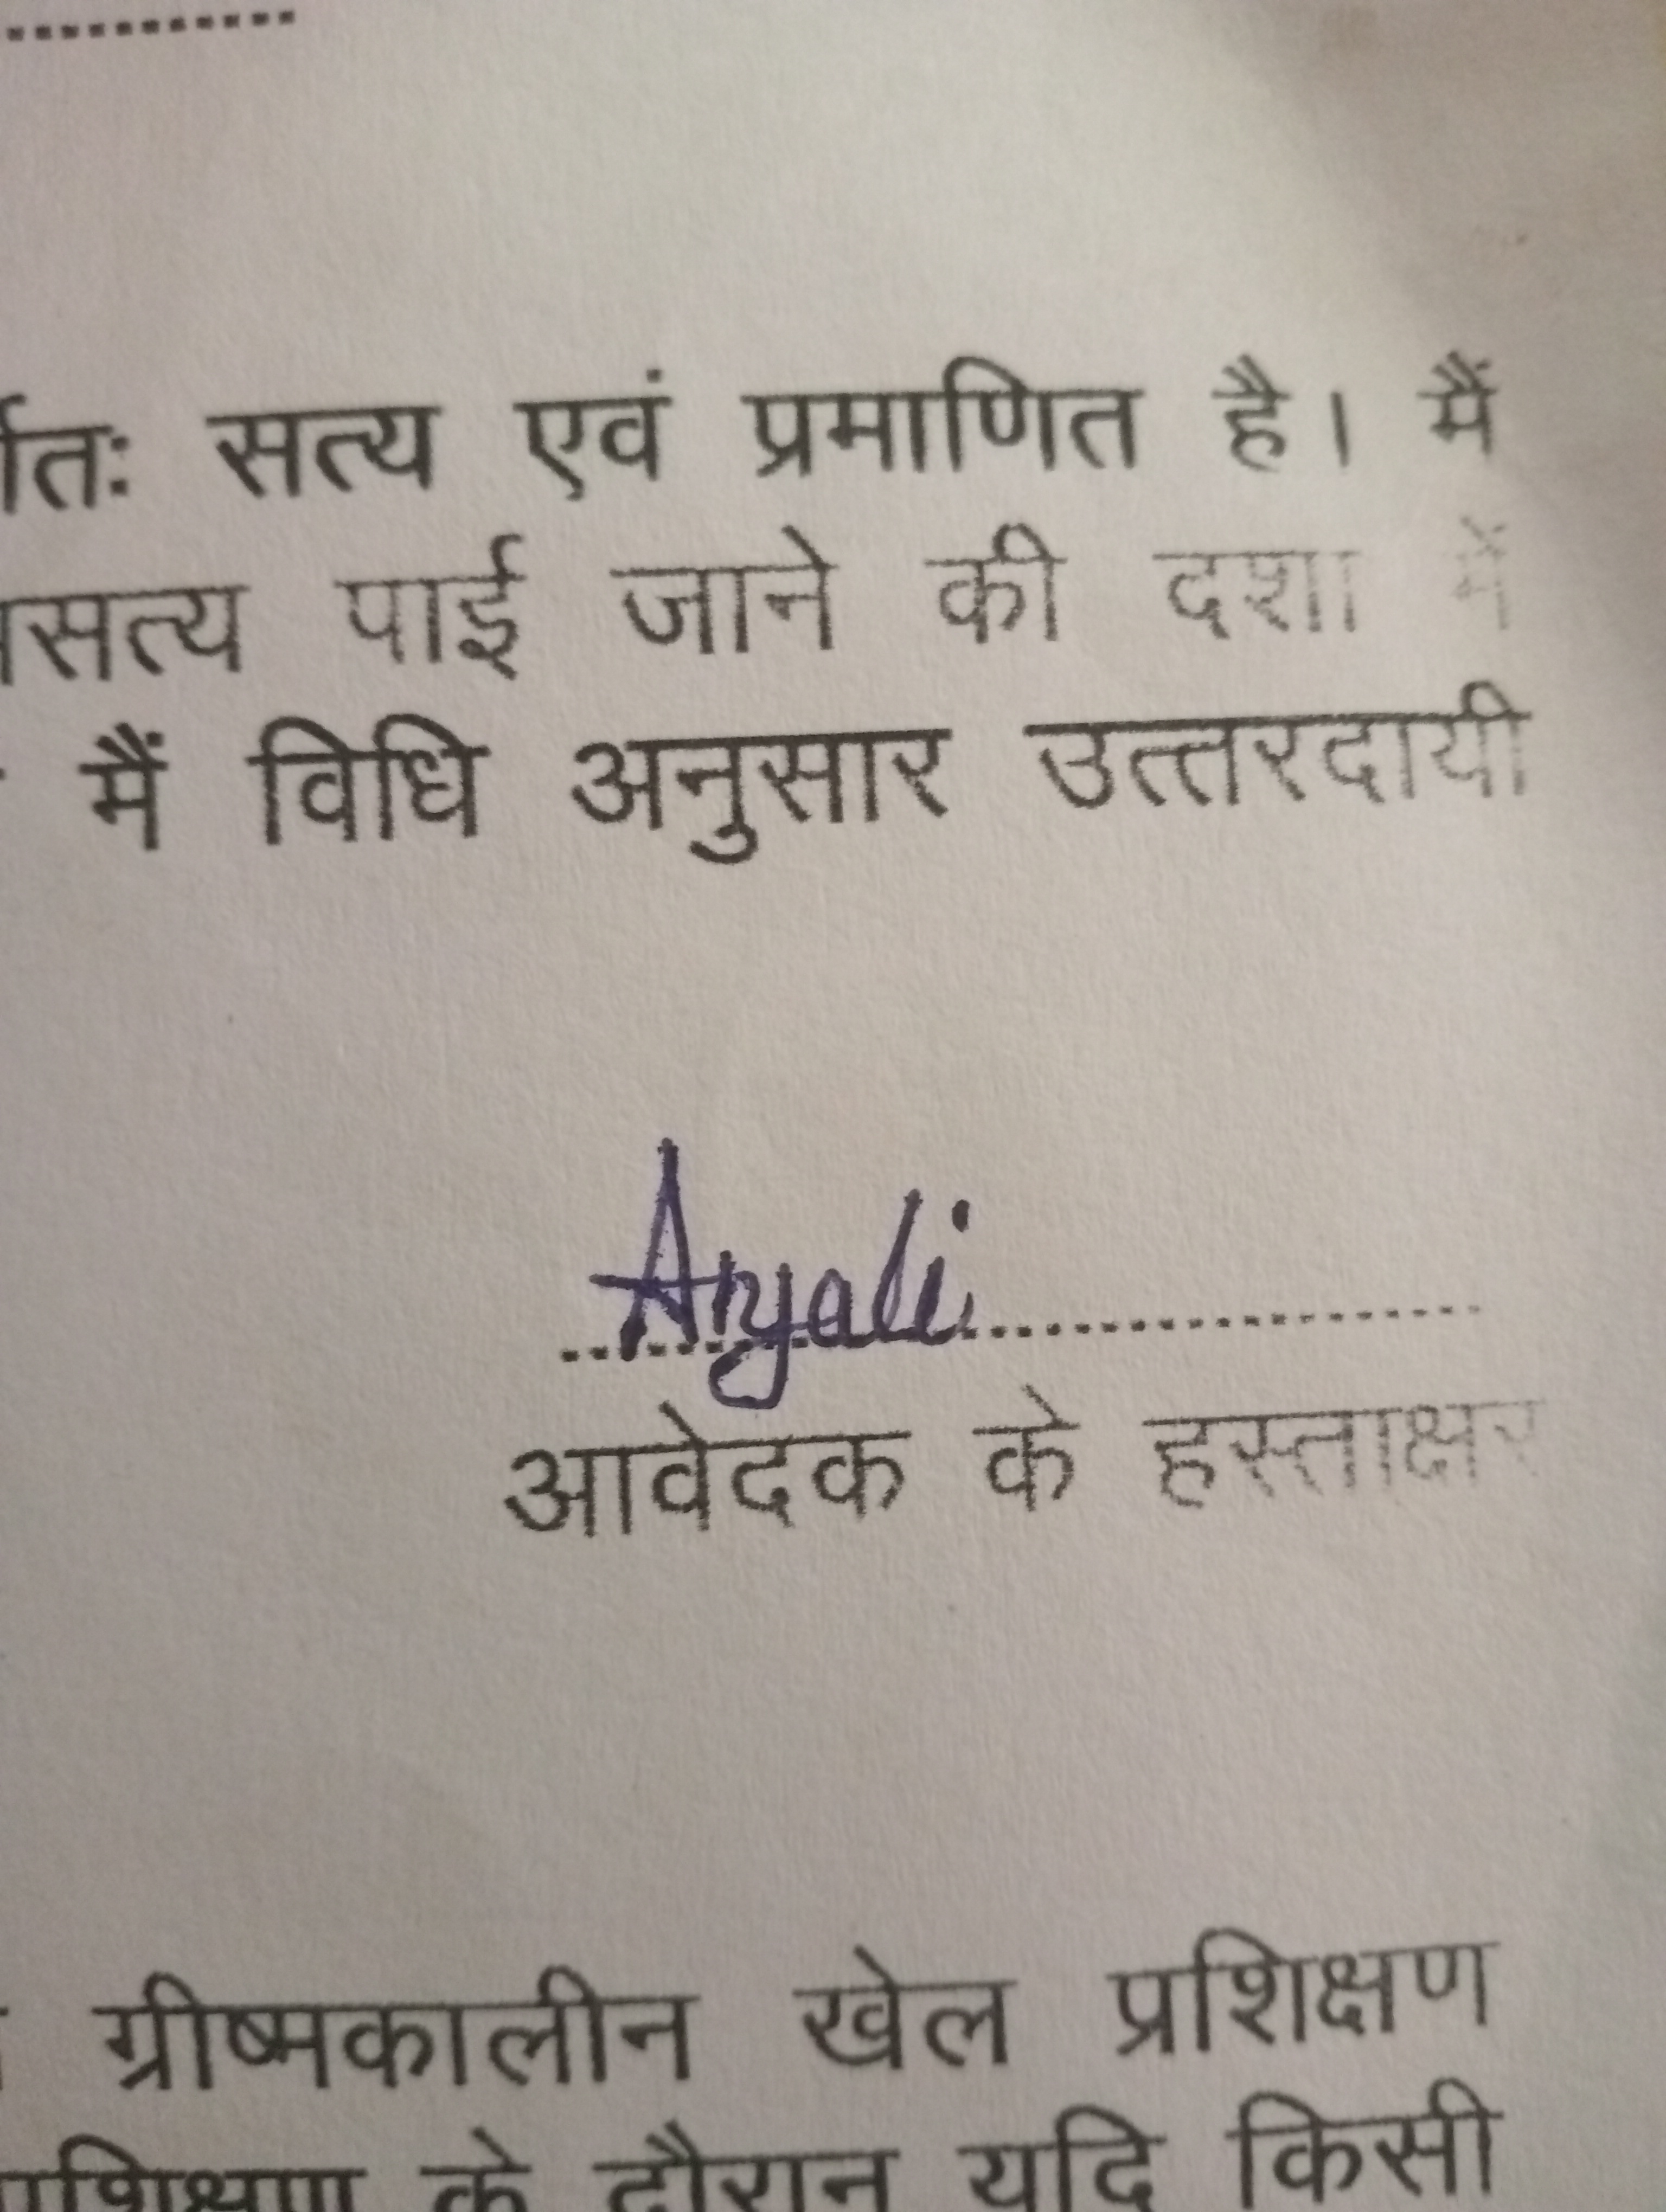 र्णतः सत्य एवं प्रमाणित है। मैं
सत्य पाई जाने की दशा में
मैं विधि अनुसार उत्तरदायी
Anjali
आवेदक के हस्ताक्षर
ग्रीष्मकालीन खेल प्रशिक्षण
प्रशिक्षण के दौरान यदि किसी